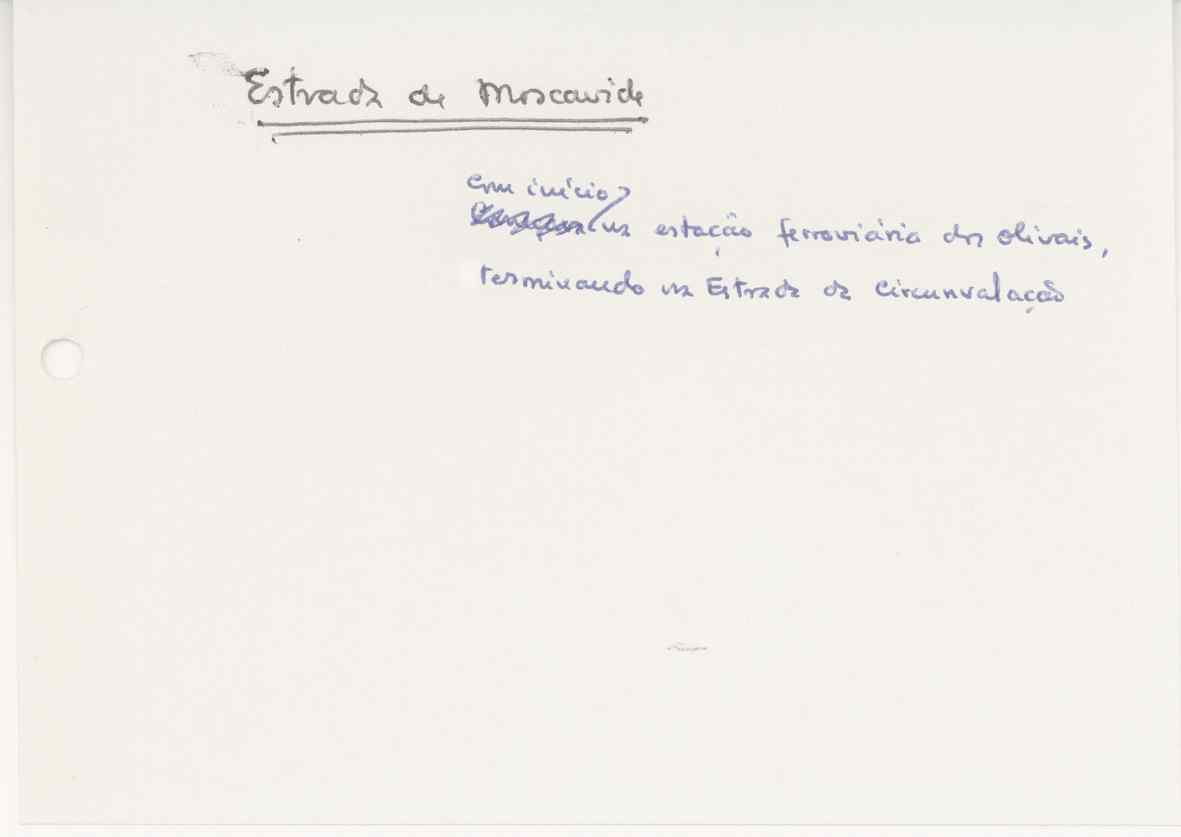 Estrada de Moscavide
com início
na estação ferroviária dos olivais,
terminando na Estrada da Circunvalação